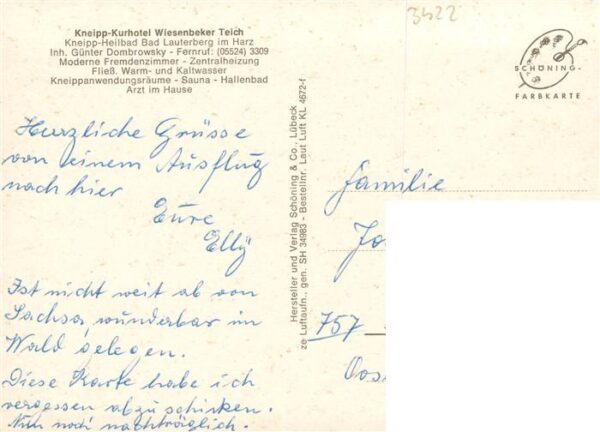 Kneipp-Kurhotel Wiesenbeker Teich
Kneipp-Heilbad Bad Lauterberg im Harz
Inh. Günter Dombrowsky - Fernruf: (05524) 3309
Moderne Fremdenzimmer - Zentralheizung
Fließ. Warm- und Kaltwasser
Kneippanwendungsräume - Sauna - Hallenbad
Arzt im Hause
Herzliche Grüsse
von einem Ausflug
nach hier
Eure
Elly
Ist nicht weit ab von
Sachsa, wunderbar im
Wald gelegen.
Diese Karte habe ich
vergessen abzuschicken.
Nun noch nachträglich.
Hersteller und Verlag Schöning & Co., Lübeck
ze Luftaufn., gen. SH 34983 - Bestellnr. Laut Luft KL 4672-f
3422
SCHÖNING-
FARBKARTE
Familie
757